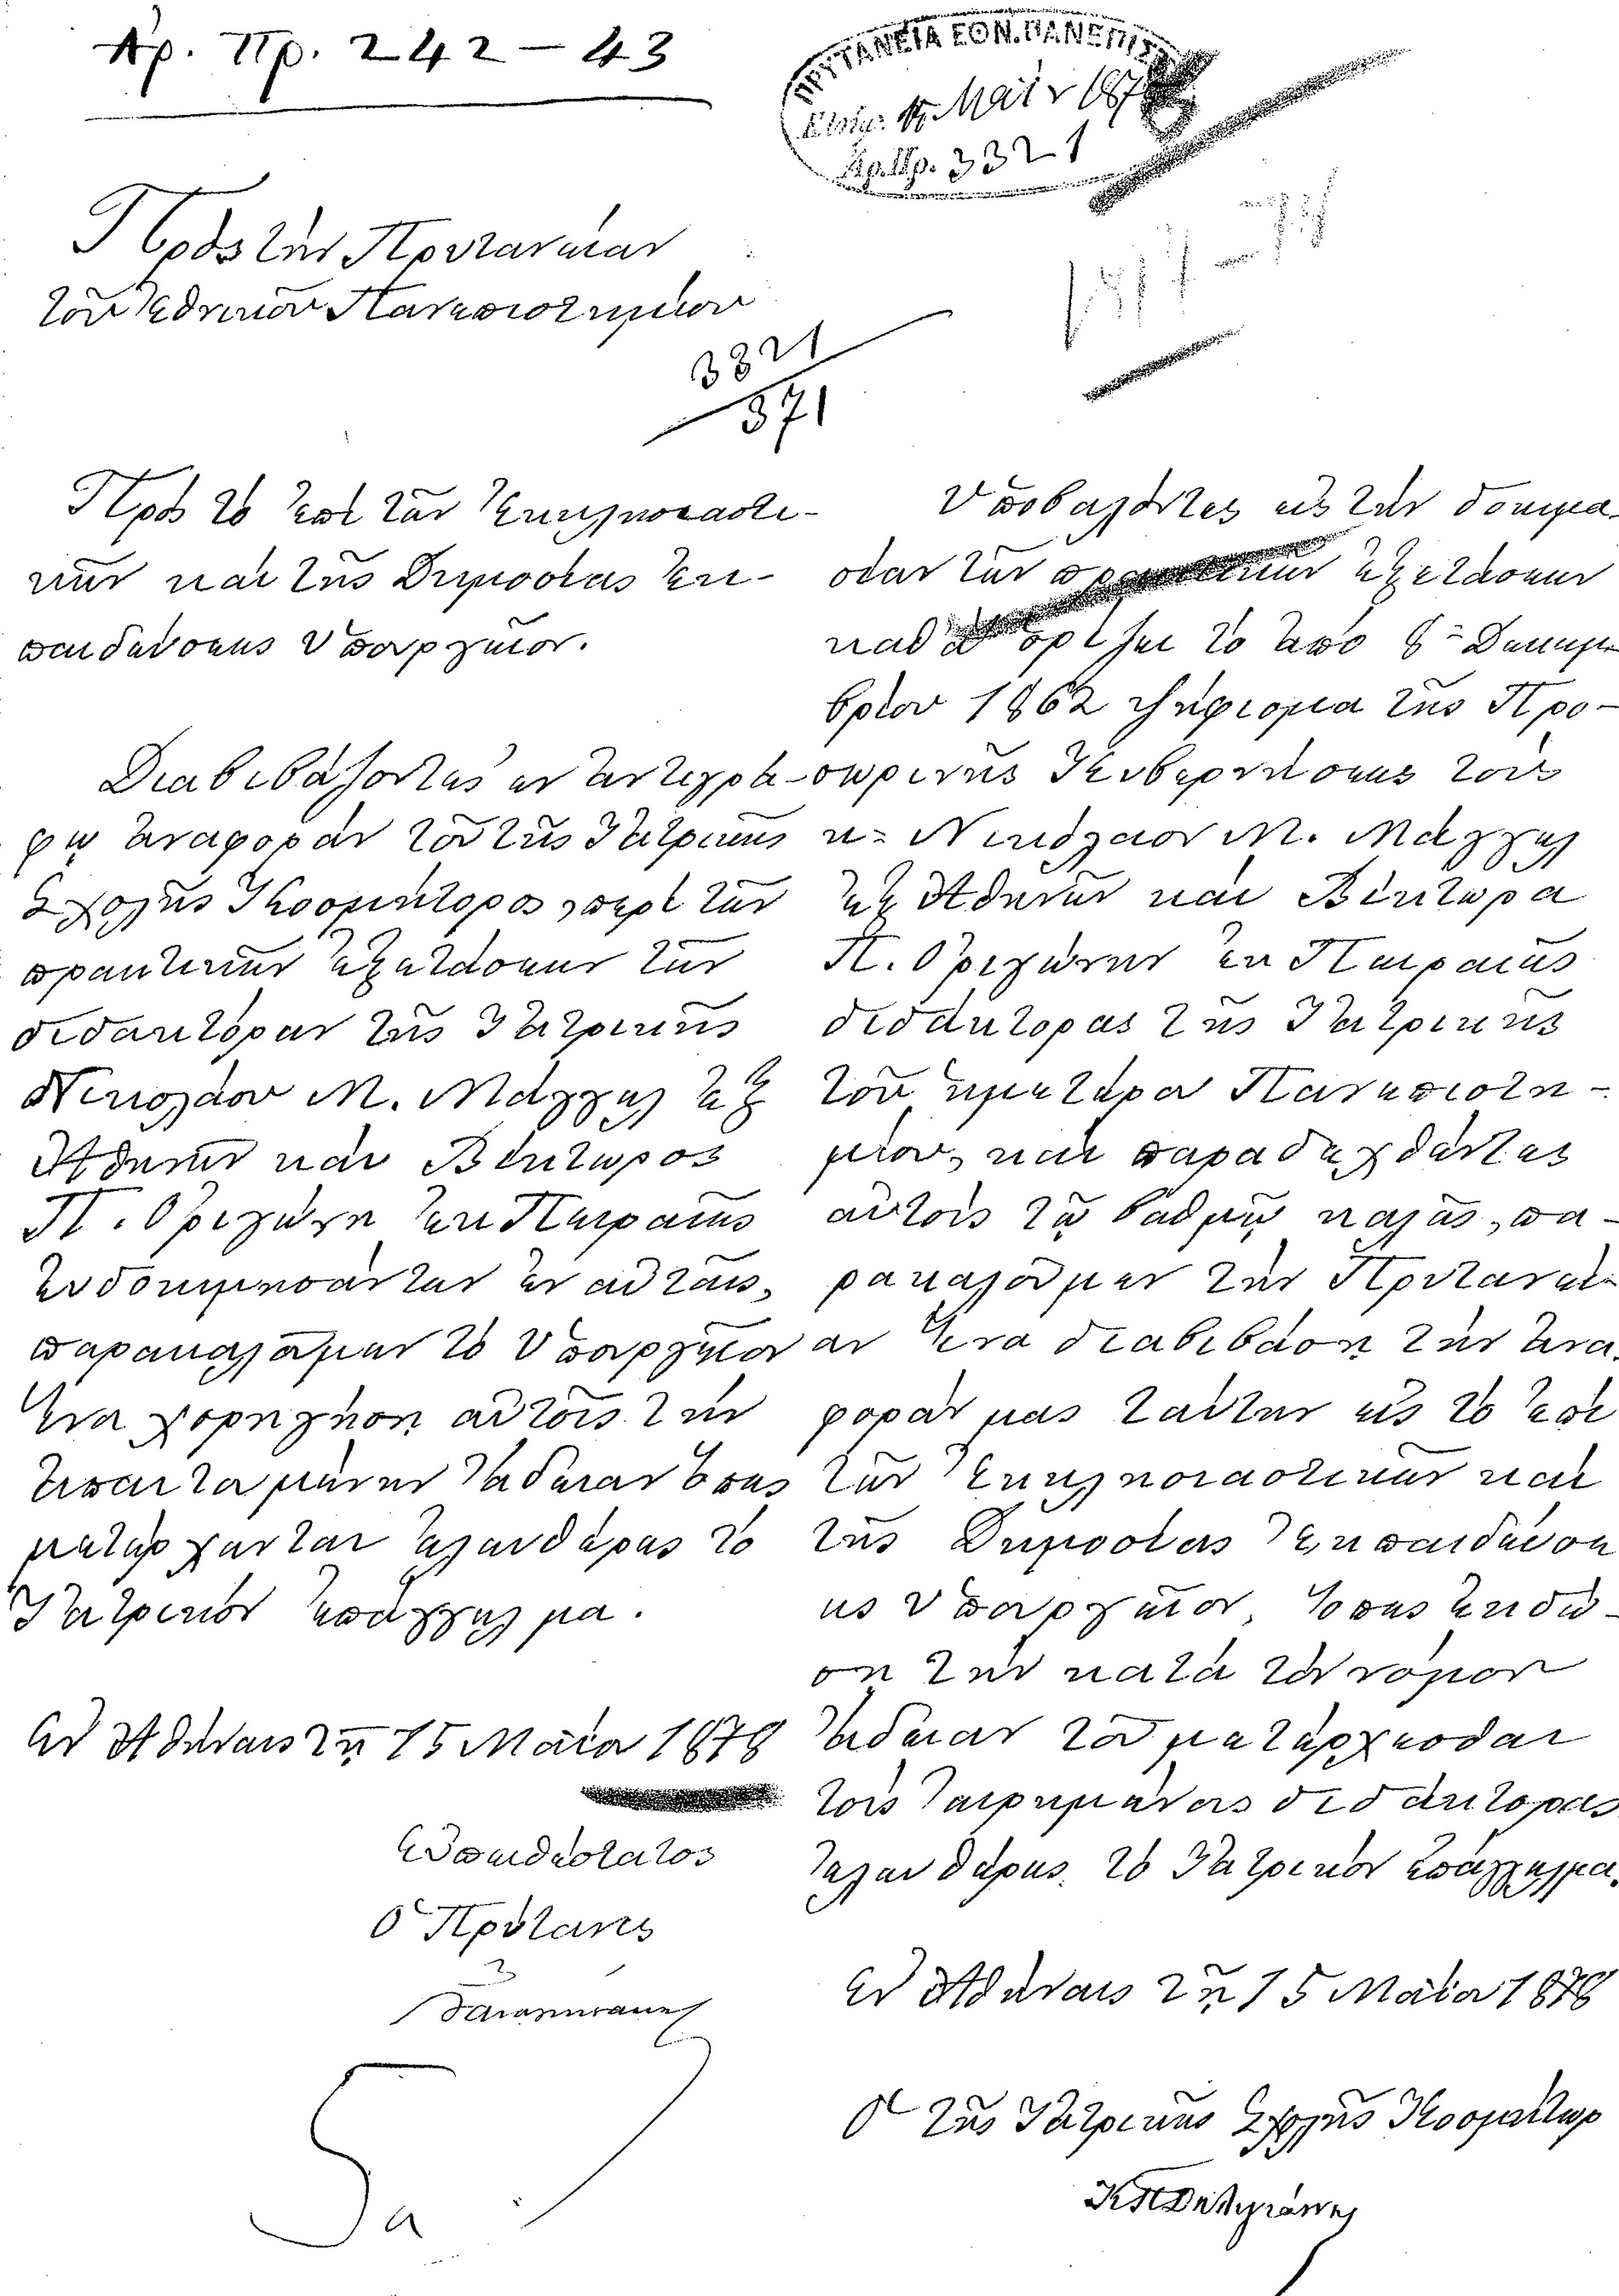 Αρ. Πρ. 242 – 43
ΠΡΥΤΑΝΕΙΑ ΕΘΝ. ΠΑΝΕΠΙΣ
Μαΐου 187
Αρ. Πρ. 3321
Πρὸς τὴν Πρυτανείαν
τοῦ Ἐθνικοῦ Πανεπιστημίου
3321
371
Πρὸς τὸ ἐπὶ τῶν Ἐκκλησιαστι-
κῶν καὶ τῆς Δημοσίας Ἐκ-
παιδεύσεως Ὑπουργεῖον.
Διαβιβάζοντες ἐν ἀντιγρά-
φῳ ἀναφορὰν τοῦ τῆς Ἰατρικῆς
Σχολῆς Κοσμήτορος, περὶ τῶν
πρακτικῶν ἐξετάσεων τῶν
διδακτόρων τῆς Ἰατρικῆς
Νικολάου Μ. Μάγγελ ἐξ
Ἀθηνῶν καὶ Βίκτωρος
Π. Ὀριγώνη ἐκ Πειραιῶς
εὐδοκιμησάντων ἐν αὐταῖς,
παρακαλοῦμεν τὸ Ὑπουργεῖον
ἵνα χορηγήσῃ αὐτοῖς τὴν
ἀπαιτουμένην ἄδειαν ὅπως
μετέρχωνται ἐλευθέρως τὸ
Ἰατρικὸν ἐπάγγελμα.
Ἐν Ἀθήναις τῇ 15 Μαΐου 1878
Εὐπειθέστατος
Ὁ Πρύτανις
Ὑποβαλόντες εἰς τὴν δοκιμα-
σίαν τῶν πρακτικῶν ἐξετάσεων
καθ' ἃ ὁρίζει τὸ ἀπὸ 6 Δεκεμ-
βρίου 1862 ψήφισμα τῆς Προ-
σωρινῆς Κυβερνήσεως τοὺς
κ. Νικόλαον Μ. Μάγγελ
ἐξ Ἀθηνῶν καὶ Βίκτωρα
Π. Ὀριγώνην ἐκ Πειραιῶς
διδάκτορας τῆς Ἰατρικῆς
τοῦ ἡμετέρου Πανεπιστη-
μίου, καὶ παραδεχθέντες
αὐτοὺς τῷ βαθμῷ καλῶς, πα-
ρακαλοῦμεν τὴν Πρυτανεί-
αν ἵνα διαβιβάσῃ τὴν ἀνα-
φοράν μας ταύτην εἰς τὸ ἐπὶ
τῶν Ἐκκλησιαστικῶν καὶ
τῆς Δημοσίας Ἐκπαιδεύσε
ως Ὑπουργεῖον, ὅπως ἐκδώ-
σῃ τὴν κατὰ τὸν νόμον
ἄδειαν τοῦ μετέρχεσθαι
τοὺς εἰρημένους διδάκτορας
ἐλευθέρως τὸ Ἰατρικὸν ἐπάγγελμα.
Ἐν Ἀθήναις τῇ 15 Μαΐου 1878
Ὁ τῆς Ἰατρικῆς Σχολῆς Κοσμήτωρ
Κ Π Δηλιγιάννης